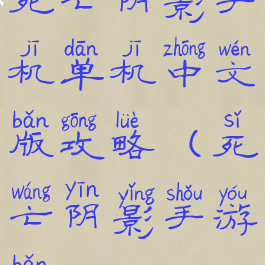 死亡阴影手
jī dān jī zhōng wén
机单机中文
bǎn gōng lüè sǐ
版攻略（死
wáng yīn yǐng shǒu yóu
亡阴影手游
bǎn